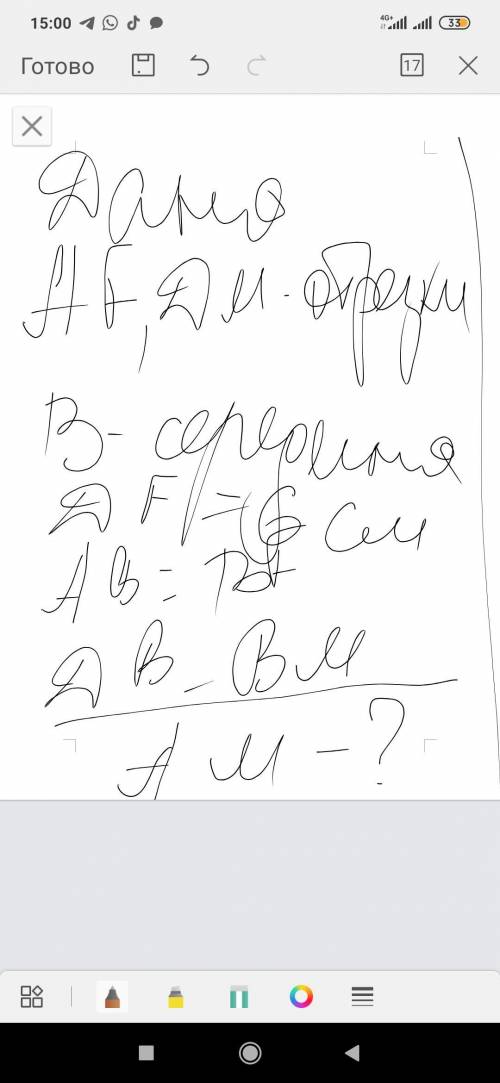 15:00 4G+ 33
Готово 17
Дано
AF, ДМ - отрезки
В - середина
ДF = 6 см
АВ = BF
ДВ = ВМ
АМ - ?